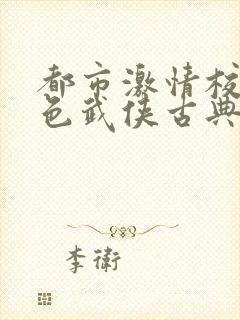 都市激情校
色武侠古典
李衛